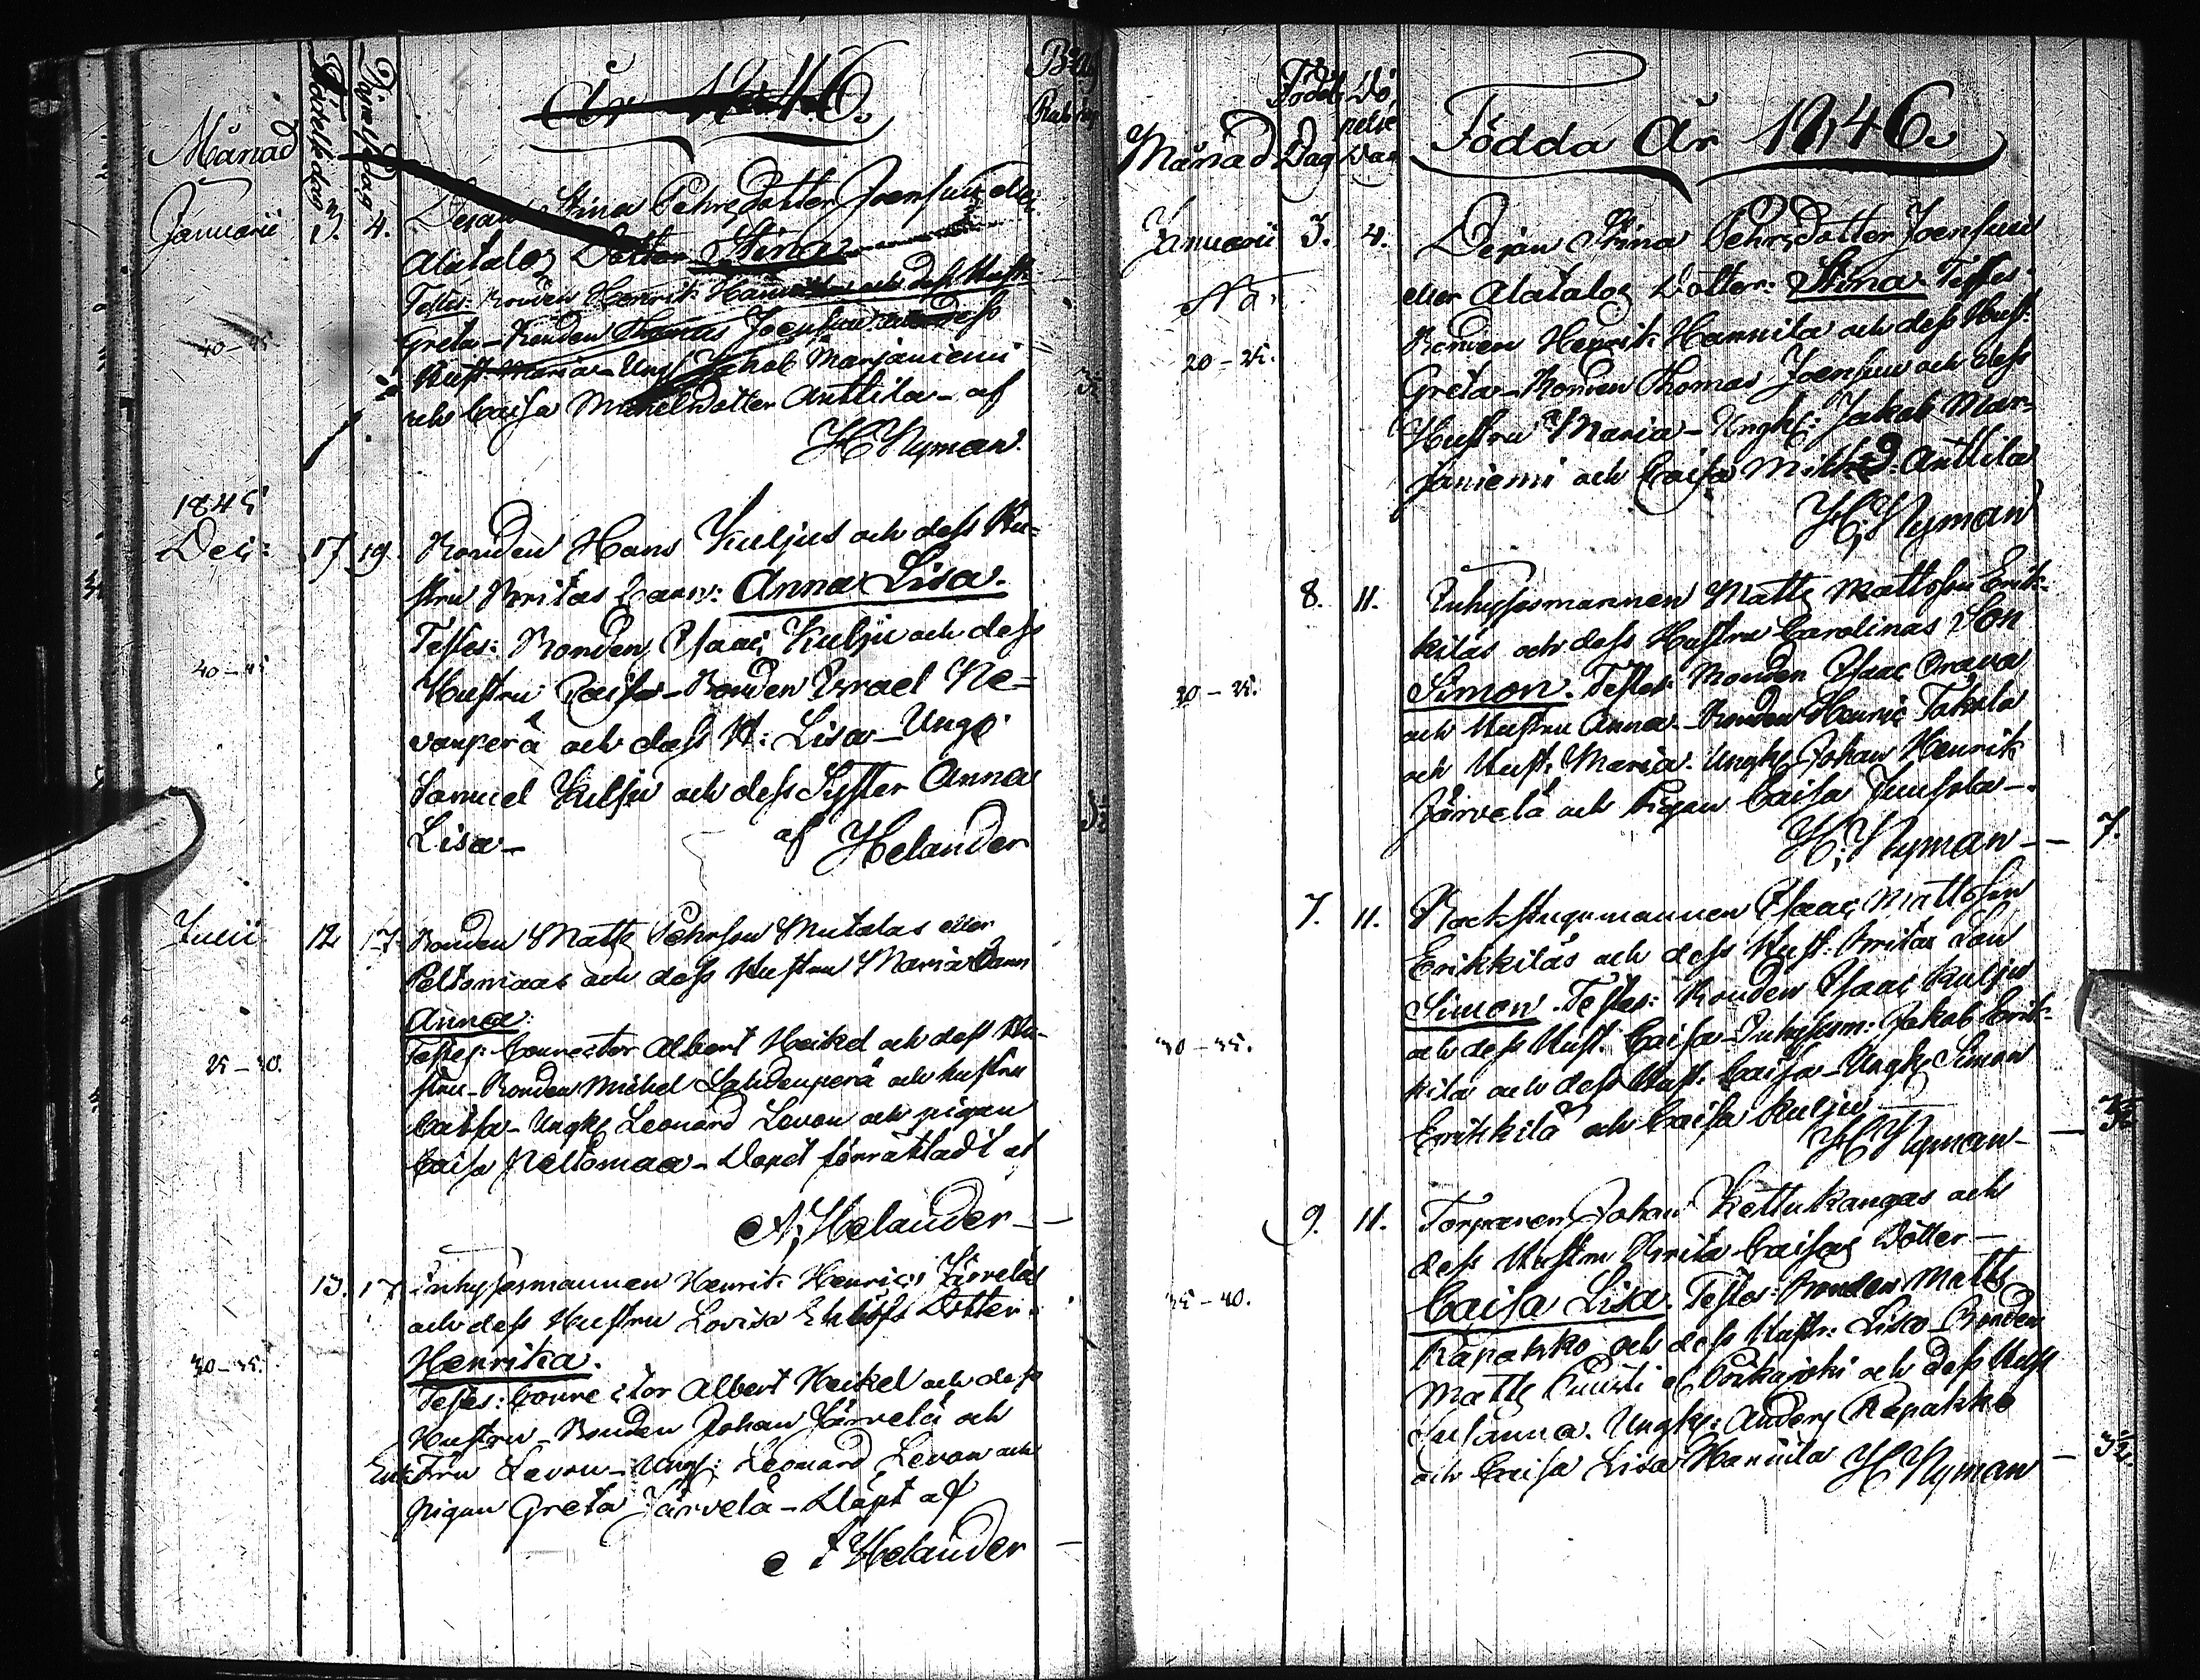 År 1846.
Månad
Födelsedag
Döpelsedag
Januarii 3. 4. Pehrsdotter Joensuu eller
Alatalos Dotter Stina
Testes: Bonden Henrik Hannila och dess Hust:
Greta - Bonden Thomas Joensuu och dess
40 - 45
Hust Maria - Ungk Jakob Marjaniemi
och Caisa Mickelsdotter Anttila - af
H Nyman.
1845
Dec: 17 19. Bonden Hans Kuljus och dess Hu=
stru Britas Barn: Anna Lisa.
Testes: Bonden Isaac Kulju och dess
40 - 45
Hustru Caisa - Bonden Israel Ne=
vanperä och dess H: Lisa - Ungk
Samuel Kulju och dess Syster Anna
Lisa - af Helander
Junii 12 17. Bonden Matts Pehrson Mutalas eller
Peltomaas och dess Hustru Maria Barn
Anna:
Testes: Conrector Albert Heikel och dess Hu-
25 - 30.
stru - Bonden Mickel Lahdenperä och hustru
Caisa - Ungk Leonard Levon och pigan
Caisa Peltomaa - Döpet förrättadt af
A; Helander -
13. 17 Inhysesmannen Henrik Henrics: Järvelä
och dess Hustru Lovisa Dotter
Henrika.
30 - 35.
Testes: Conrector Albert Heikel och dess
Hustru - Bonden Johan Järvelä och
Enk Fru Levon - Ungk: Leonard Levon och
Pigan Greta Järvelä - Döpt af
A Helander
Månad Född Dag Dö pelse Dag
Födda År 1846.
Januarii 3. 4. Stina Pehrsdotter Joensuu
eller Alatalos Dotter: Stina Testes:
No.
Bonden Henrik Hannila och dess Hust:
20 - 25.
Greta - Bonden Thomas Joensuu och dess
Hustru Maria - Ungk: Jakob Mar-
janiemi och Caisa Anttila
H; Nyman
8. 11. Inhysesmannen Matts Mattsson Erik-
kiläs och dess Hustru Carolinas Son
20 - 25.
Simon. Testes: Bonden Isaac Orava
och Hustru Anna - Bonden Henric Takala
och Hust: Maria. Ungk Johan Henrik
Järvelä och Pigan Caisa Junsola -
H; Nyman - 7.
7. 11. Backstugumannen Isaac Mattsson
Erikkiläs och dess Hust: Britas Son
Simon. Testes: Bonden Isaac Kulju
30 - 35.
och dess Hust Caisa - Inhysesm: Jakob Erik-
kilä och dess Hust: Caisa - Ungk Simon
Erikkilä och Caisa Kulju
H Nyman -
9. 11. Torparen Johan Kettukangas och
dess Hustru Brita Caisas Dotter -
35 - 40.
Caisa Lisa. Testes: Bonden Matts
Rapakko och dess Hustr: Lisa - Bonden
Matts och dess Hust
Susanna. Ungk: Anders Rapakko
och Caisa Lisa Hannila H Nyman - 3½.